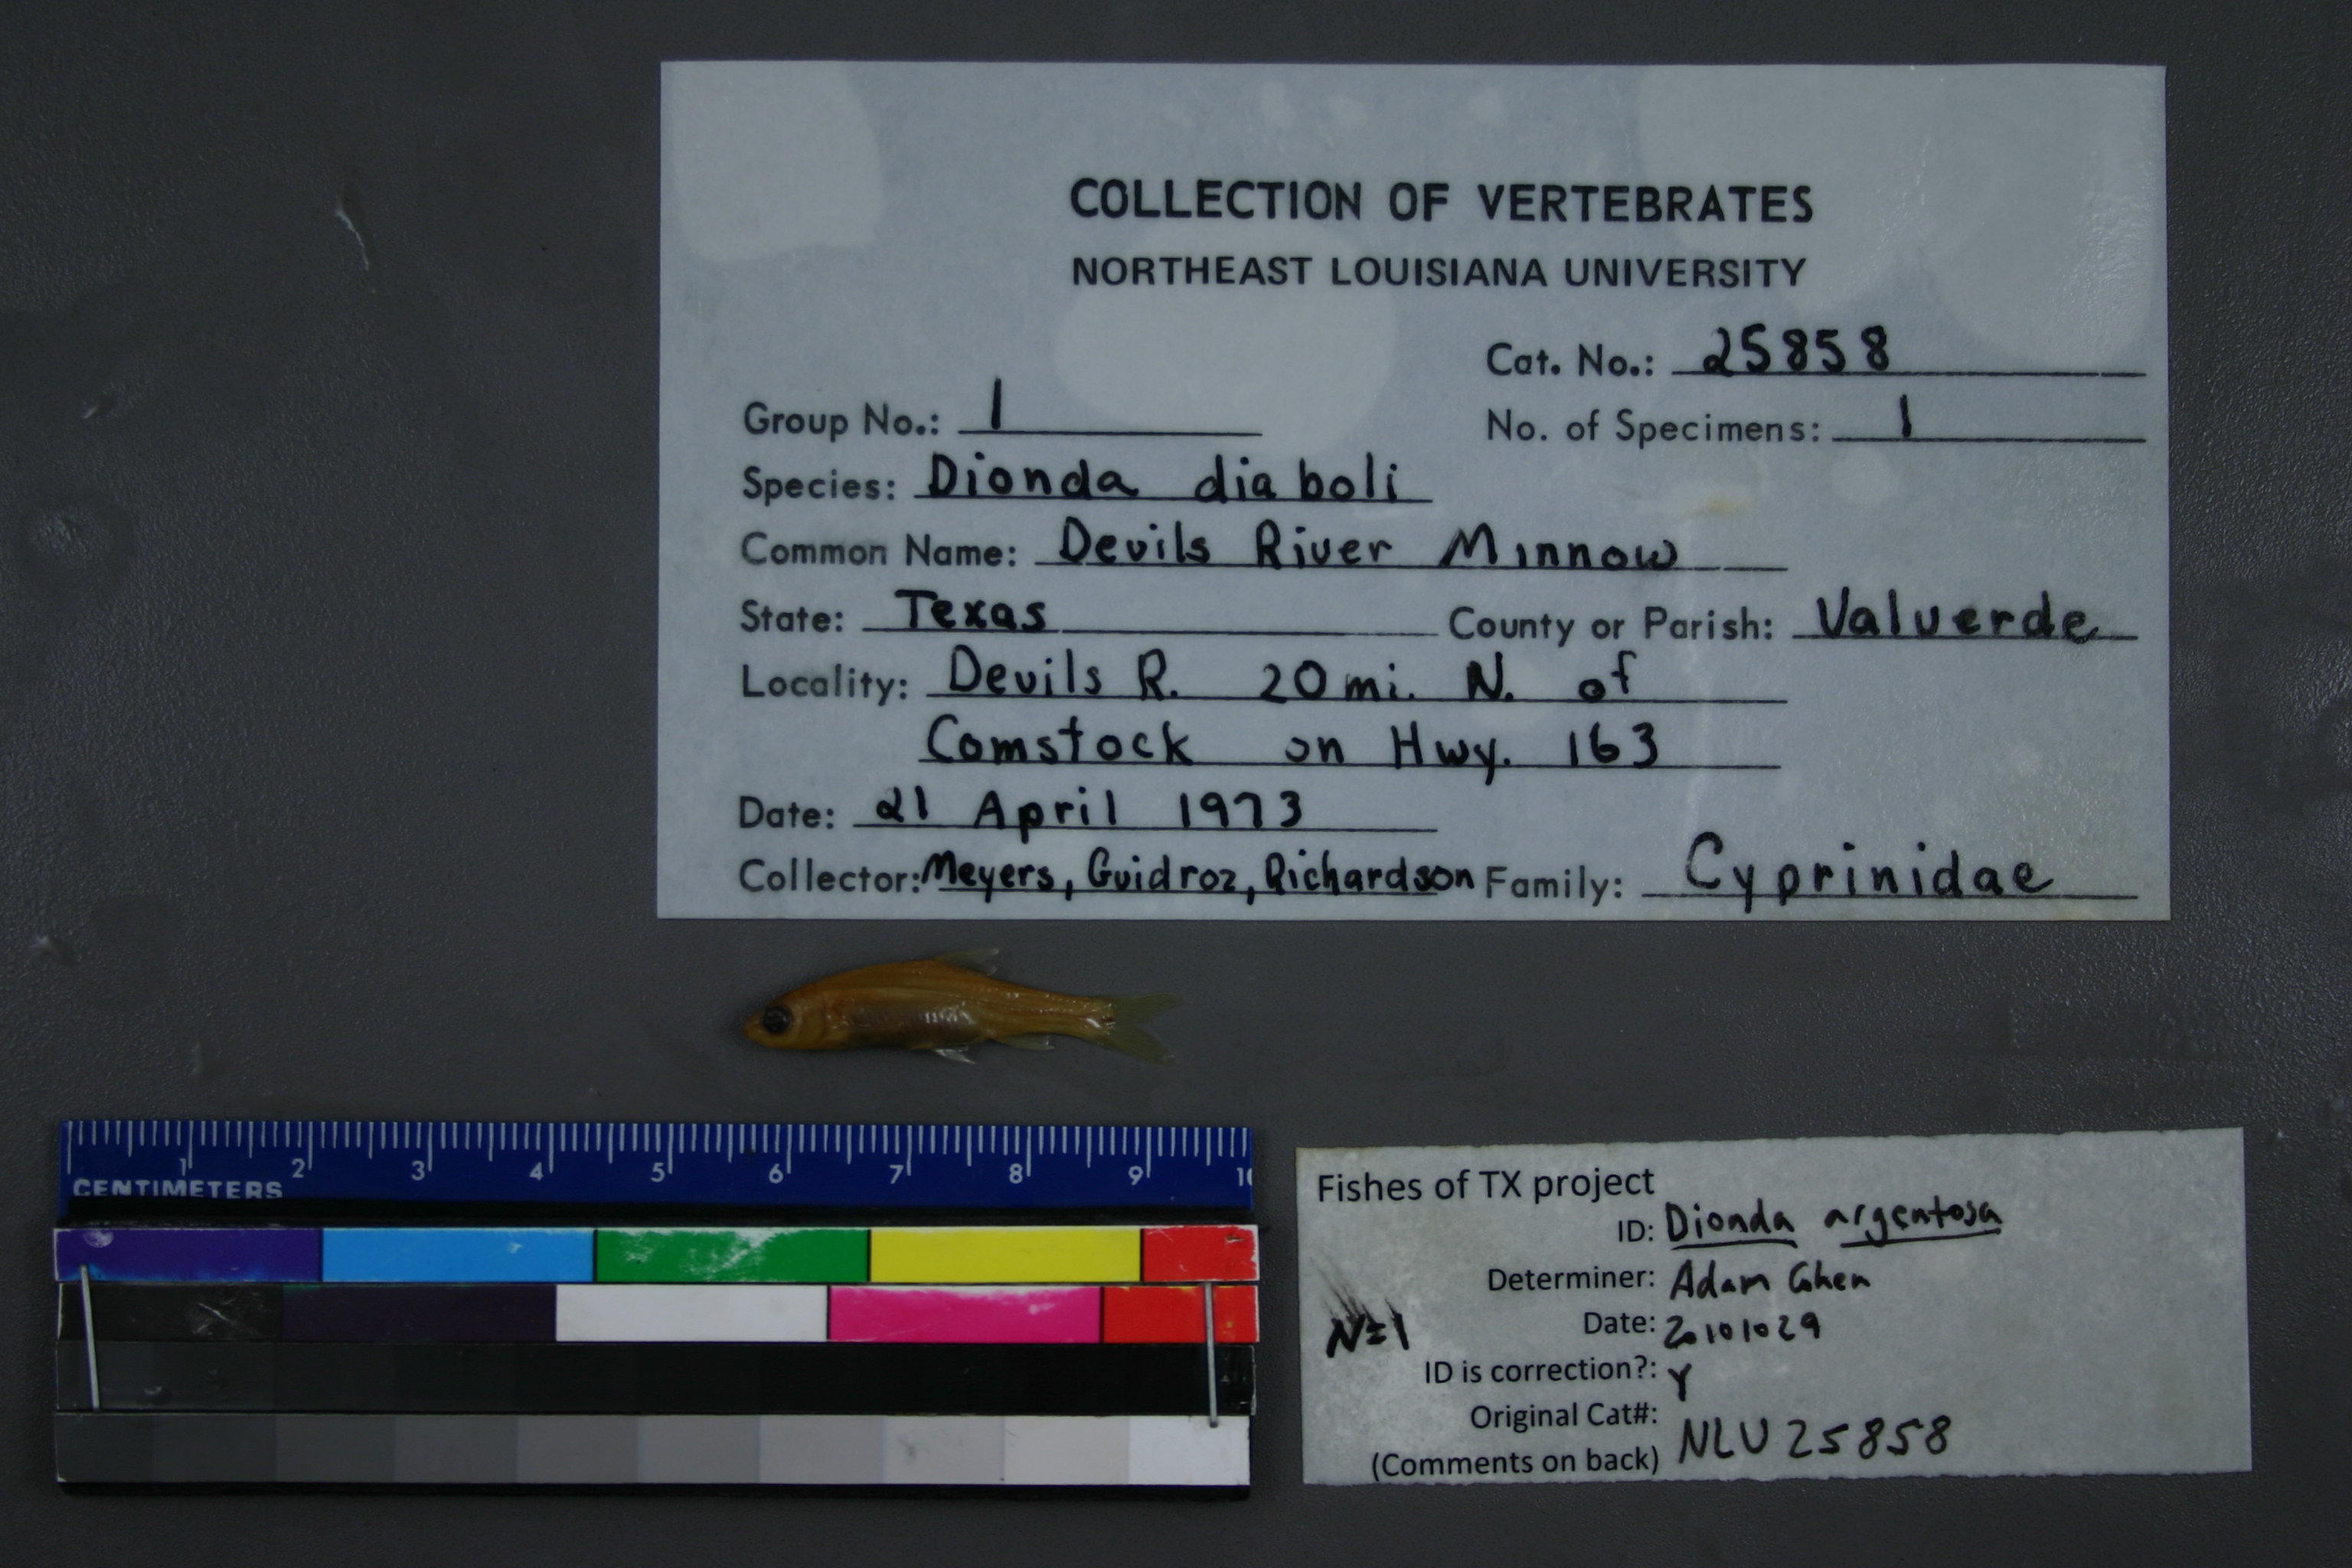 COLLECTION OF VERTEBRATES
NORTHEAST LOUISIANA UNIVERSITY
Cat. No.: 25858
Group No.: 1
No. of Specimens: 1
Species: Dionda diaboli
Common Name: Devils River Minnow
State: Texas County or Parish: Valverde
Locality: Devils R. 20 mi. N. of
Comstock on Hwy. 163
Date: 21 April 1973
Collector: Meyers, Guidroz, Richardson Family: Cyprinidae
1 2 3 4 5 6 7 8 9 10
CENTIMETERS
Fishes of TX project
ID: Dionda argentosa
Determiner: Adam Cohen
Date: 20101029
N=1
ID is correction?: Y
Original Cat#:
(Comments on back) NLU 25858